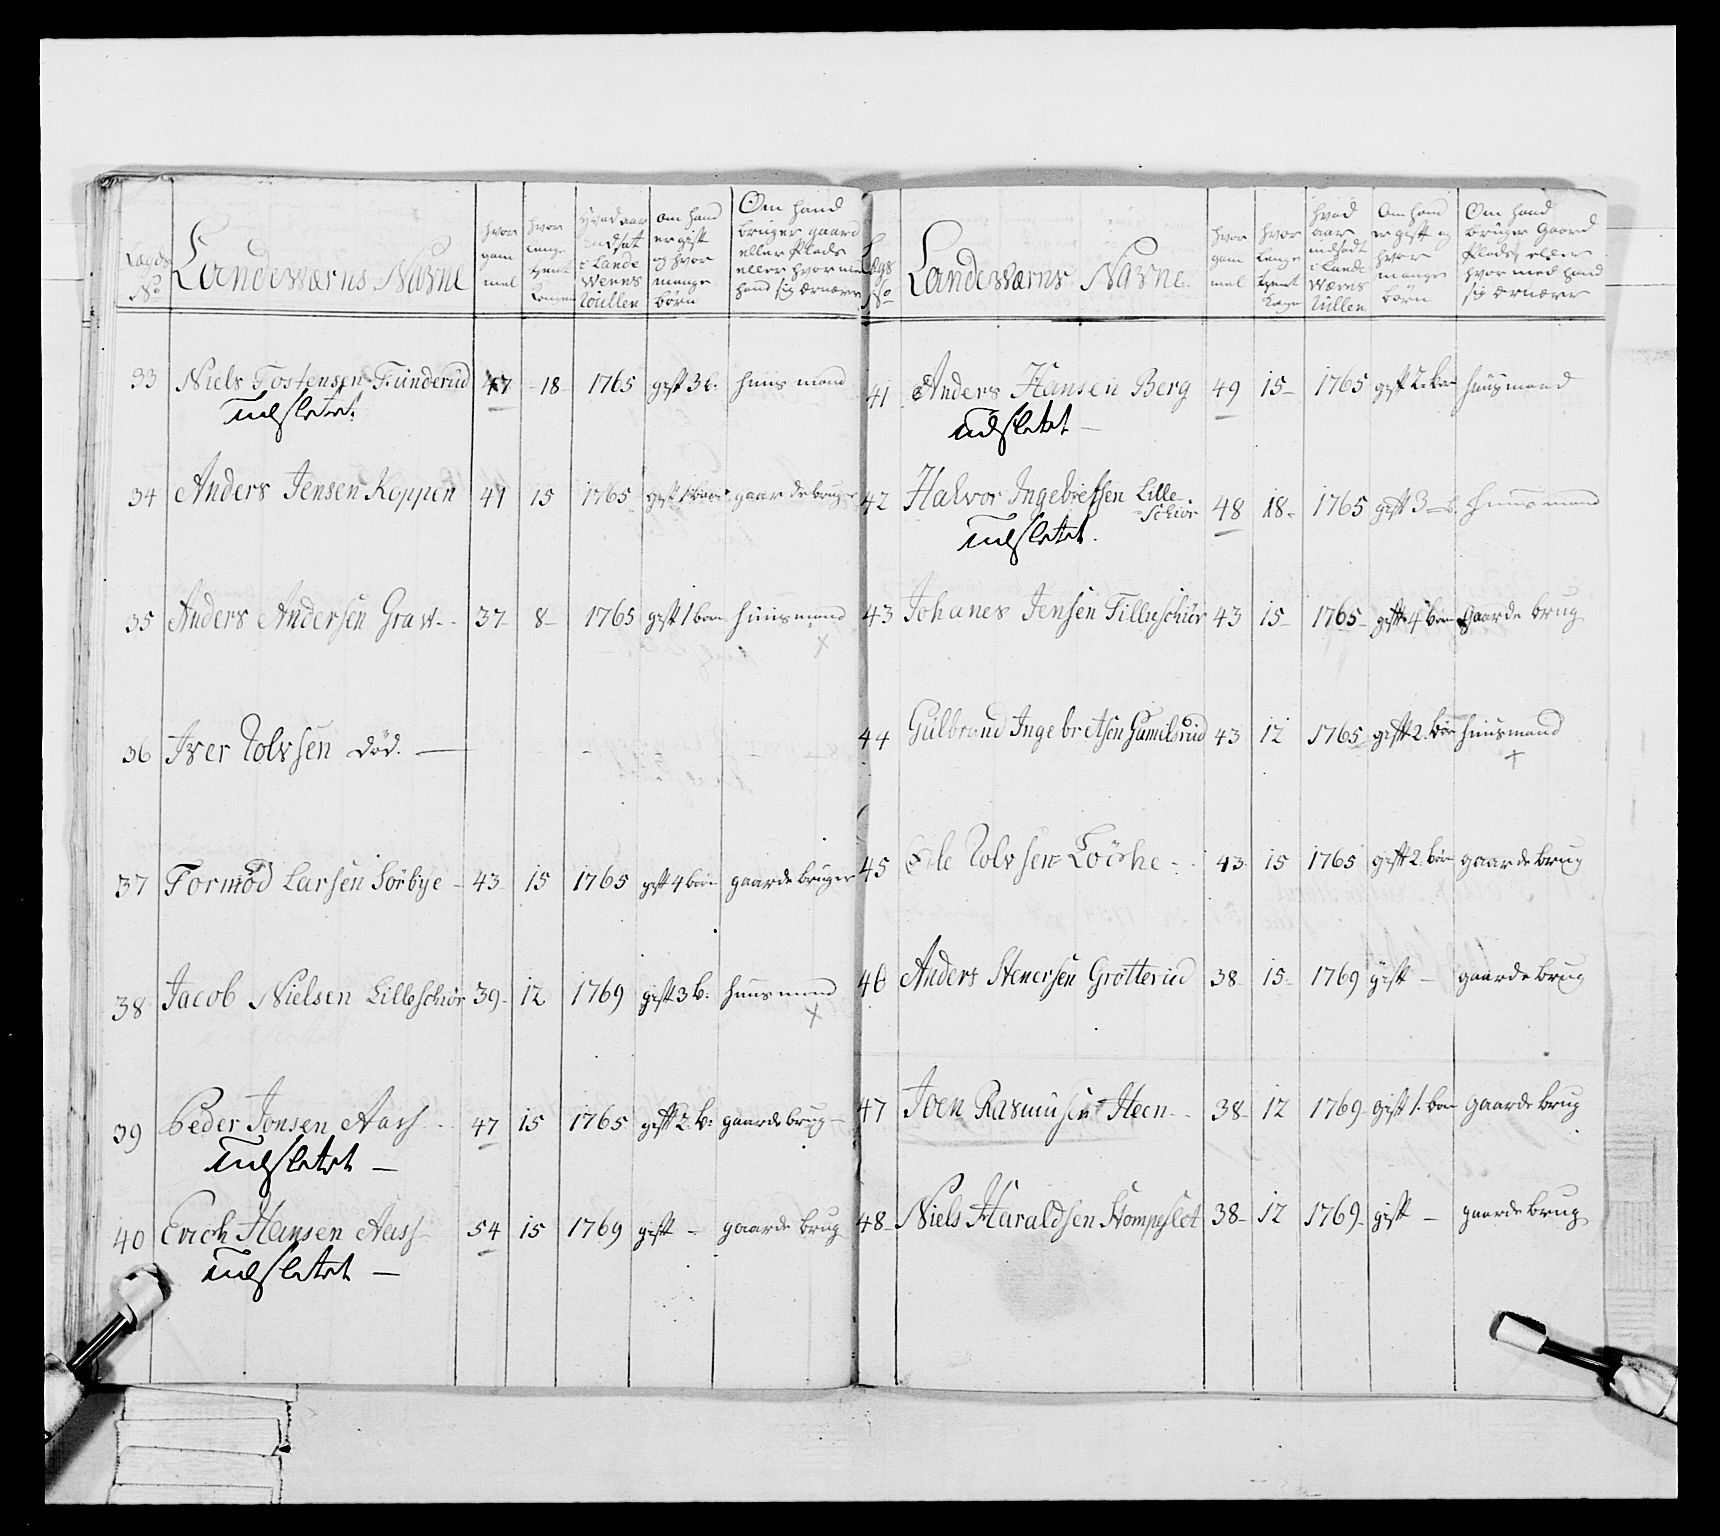 Lægds No | Landeværns Navne | hvor gam mel | hvor lenge tient Kongen | Hvad aar indsat i Lande Værns Rullen | om hand er gift og hvor mange børn | Om hand bruger gaard eller Plads eller hvor med hand sig ernærer
33 Niels Tostensen Funderud 47 - 18 - 1765 gift 3 b: huusmand
Udslettet.
34 Anders Jensen Koppen 41 15 1765 gift 1 barn gaardebruger
35 Anders Andersen Grav - 37 8 - 1765 gift 1 barn huusmand
x
36 Iver Rolvsen død. —
37 Tormod Larsen Sørbye - 43 15 1765 gift 4 børn gaardebruger
38 Jacob Nielsen Lilleschiør 39 - 12 1769 gift 3 b: huusmand
x
39 Peder Jonsen Aass - 47 15 1765 gift 2 b: gaardebrug -
Udslettet —
40 Erich Hansen Aass - 54 15 1769 gift - gaarde brug
Udslettet —
Lægs No | Landeværns Navne. | hvor gam mel | hvor lenge tient Konge | hvad aar indsadt i Lande Værns Rullen | Om hand er gift og hvor mange børn | Om hand bruger Gaard Plads, eller hvor med hand sig ernærer
41 Anders Hansen Berg 49 15 - 1765 gift huusmand
Udslettet —
42 Halvor Ingebretsen Lille-
schiør 48 18 - 1765 gift 3 - b. huusmand
Udslettet.
43 Johanes Jensen Tilluschiør 43 15 - 1765 - gift 4 børn gaarde brug
44 Gulbrand Ingebretsen Gumelsrud 43 12 1765 gift 2. børn huusmand
x
45 Ole Rolvsen Løche - 43 15 1765 gift 2. børn gaardebrug
46 Anders Stenersen Grøtterud 38 - 15 - 1769 gift — gaardebrug
47 Joen Rasmusen Heen - 38 - 12 1769 - gift 1. barn gaardebrug
48 - Niels Haraldsen Stompeslet 38 - 12 1769 - gift — gaardebrug